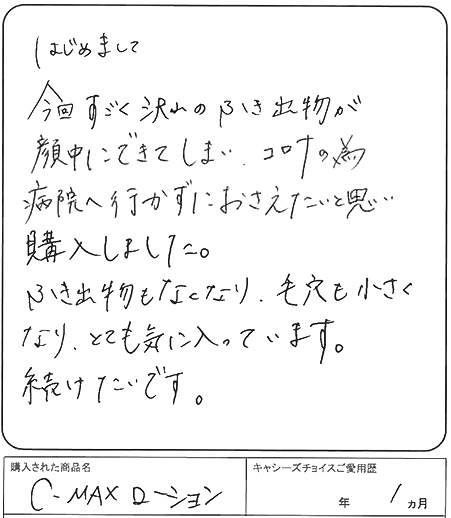 はじめまして
今回すごく沢山のふき出物が
顔中にできてしまい、コロナの為
病院へ行かずにおさえたいと思い
購入しました。
ふき出物もなくなり、毛穴も小さく
なり、とても気に入っています。
続けたいです。
購入された商品名
キャシーズチョイスご愛用歴
C-MAXローション
年 1 ヵ月